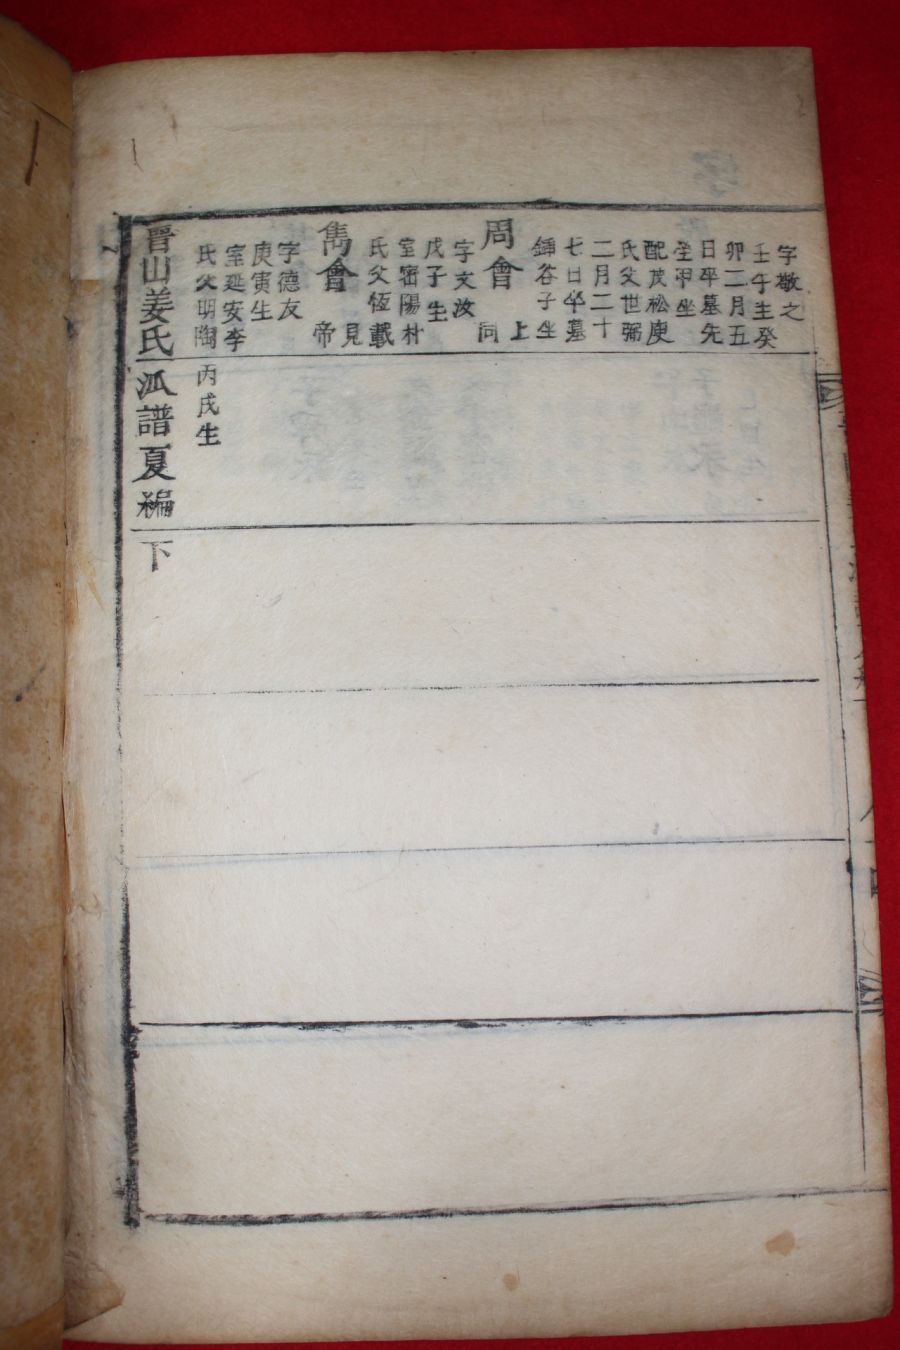 字敬之
壬午生癸
卯二月五
日卒墓先
塋甲坐
配茂松庾
氏父世弼
二月二十
七日卒墓
鍾谷子坐
周會
上
同
字文汝
戊子生
室密陽朴
氏父恆載
見
帝
雋會
字德友
庚寅生
室延安李
氏父明陶
丙戌生
晋山姜氏派譜夏編下